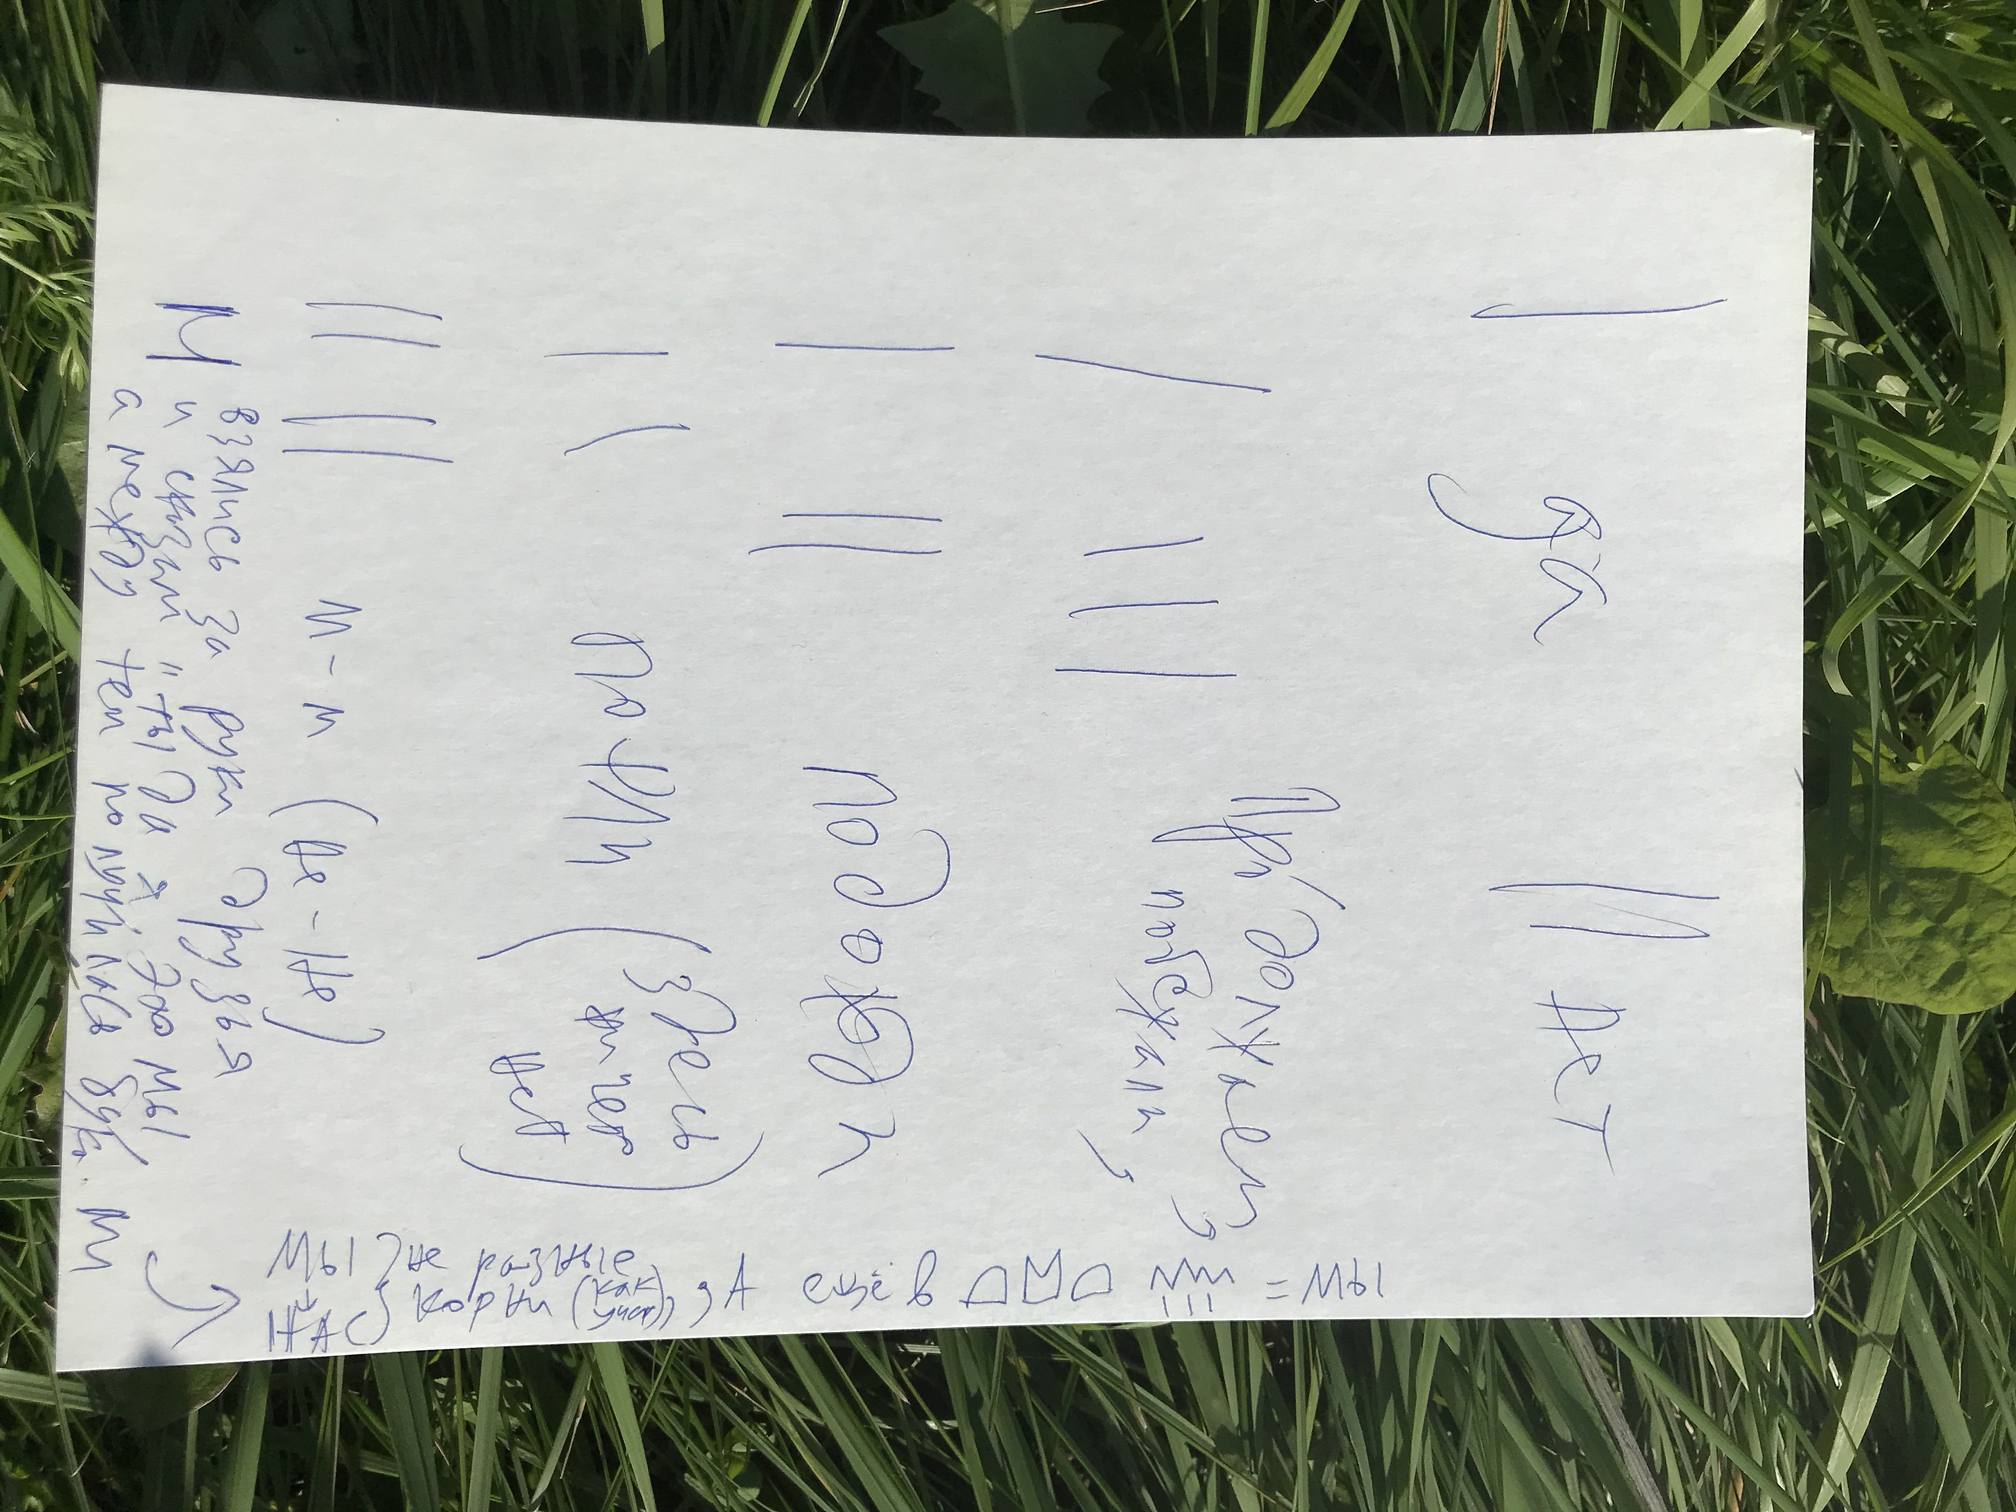 | да || нет
| ||| продолжаем,
побежали,
| || подожди
| | пойми (здесь
ничего
нет)
|| || м-м (не-не)
взялись за руки друзья
М и сказали "ты да я это мы
а между тем получилась букв. м
мы } не разные
НАС } корни (как
учат), А ещё в = мы